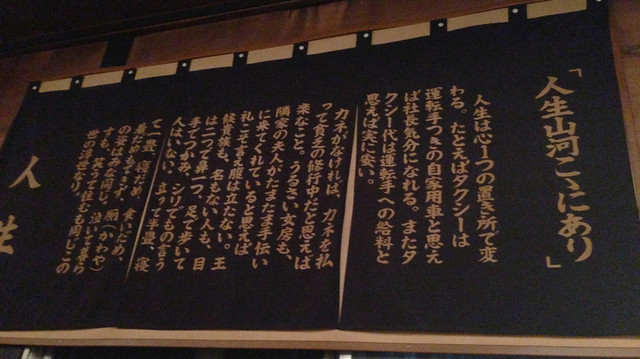 「人生山河こゝにあり」
人生は心一つの置き所で変
わる。たとえばタクシーは
運転手つきの自家用車と思え
ば社長気分になれる。またタ
クシー代は運転手への給料と
思えば実に安い。
カネがなければ、カネを払
って貧乏の修行中だと思えば
楽なこと。うるさい女房も、
隣家の夫人がたまたま手伝い
に来てくれていると思えば
礼こそすれ腹は立たない。王
侯貴族も、名もない人も、目
は二つで鼻一つ、足で歩いて
手でつかみ、シリでもの言う
人はいない。立って半畳、寝
て一畳、
の姿はみな同じ。厠（かわや）
すも、笑うて
世の
人
生